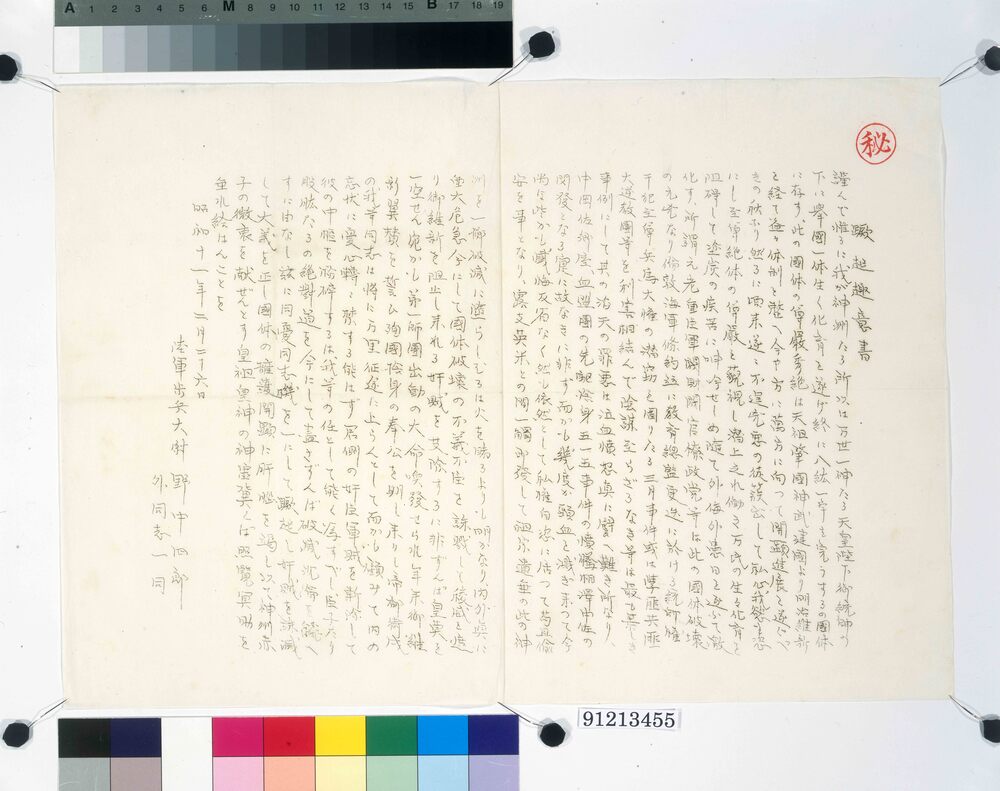 A 1 2 3 4 5 6 M 8 9 10 11 12 13 14 15 B 17 18 19
秘
蹶起趣意書
謹んで惟るに我が神洲たる所以は万世一神たる天皇陛下御統帥の
下に挙國一体生々化育を遂げ終に八紘一宇を完うするの國体
に存す、此の國体の尊厳秀絶は天祖肇國神武建國より明治維新
を経て益々体制を整へ今や方に萬方に向つて開顕進展を遂ぐべ
きの秋なり然るに頃来遂に不逞兇悪の徒簇出して私心我慾を恣
にし至尊絶体の尊厳を藐視し潜上之れ働き万民の生々化育を
阻碍して塗炭の疾苦に呻吟せしめ随て外侮外患日を逐ふて激
化す、所謂元老重臣軍閥財閥官僚政党等は此の國体破壊
の元兇なり倫敦海軍條約並に教育総監更迭に於ける統帥権
干犯至尊兵馬大権の潜窃を圖りたる三月事件或は学匪共匪
大逆教團等と利害相結んで陰謀至らざるなき等は最も著しき
事例にして其の滔天の罪悪は泣血憤怒真に譬へ難き所なり、
中岡佐郷屋血盟團の先駆捨身五一五事件の憤騰相澤中佐の
閃発となる寔に故なきに非ず而かも幾度か頸血を濺ぎ来つて今
尚ほ些かも懺悔反省なく然も依然として私権自恣に居つて苟且偸
安を事となり、露支英米との間一觸即発して祖宗遺垂の此の神
洲を一擲破滅に堕らしむるは火を睹るよりも明かなり内外真に
重大危急今にして國体破壊の不義不臣を誅戮して稜威を遮
り御維新を阻止し来れる奸賊を芟除するに非ずんば皇謨を
一空せん宛かも第一師團出動の大命煥発せられ年来御維
新翼賛を誓ひ殉國捨身の奉公を期し来りし帝都衛戍
の我等同志は將に万里征途に上らんとして而かも顧みて内の
忘状に憂心轉々禁ずる能はず君側の奸臣軍賊を斬除して
彼の中樞を粉碎するは我等の任として能く為すべし臣子たり
股肱たるの絶對道を今にして盡さずんば破滅沈淪を飜へ
すに由なし茲に同憂同志機を一にして蹶起し奸賊を誅滅
して大義を正し國体の擁護開顕に肝脳を竭し以て神州赤
子の微衷を献ぜんとす皇祖皇神の神霊冀くは照覧冥助を
垂れ給はんことを
昭和十一年二月二十六日
陸軍歩兵大尉 野中四郎
外同志一同
91213455